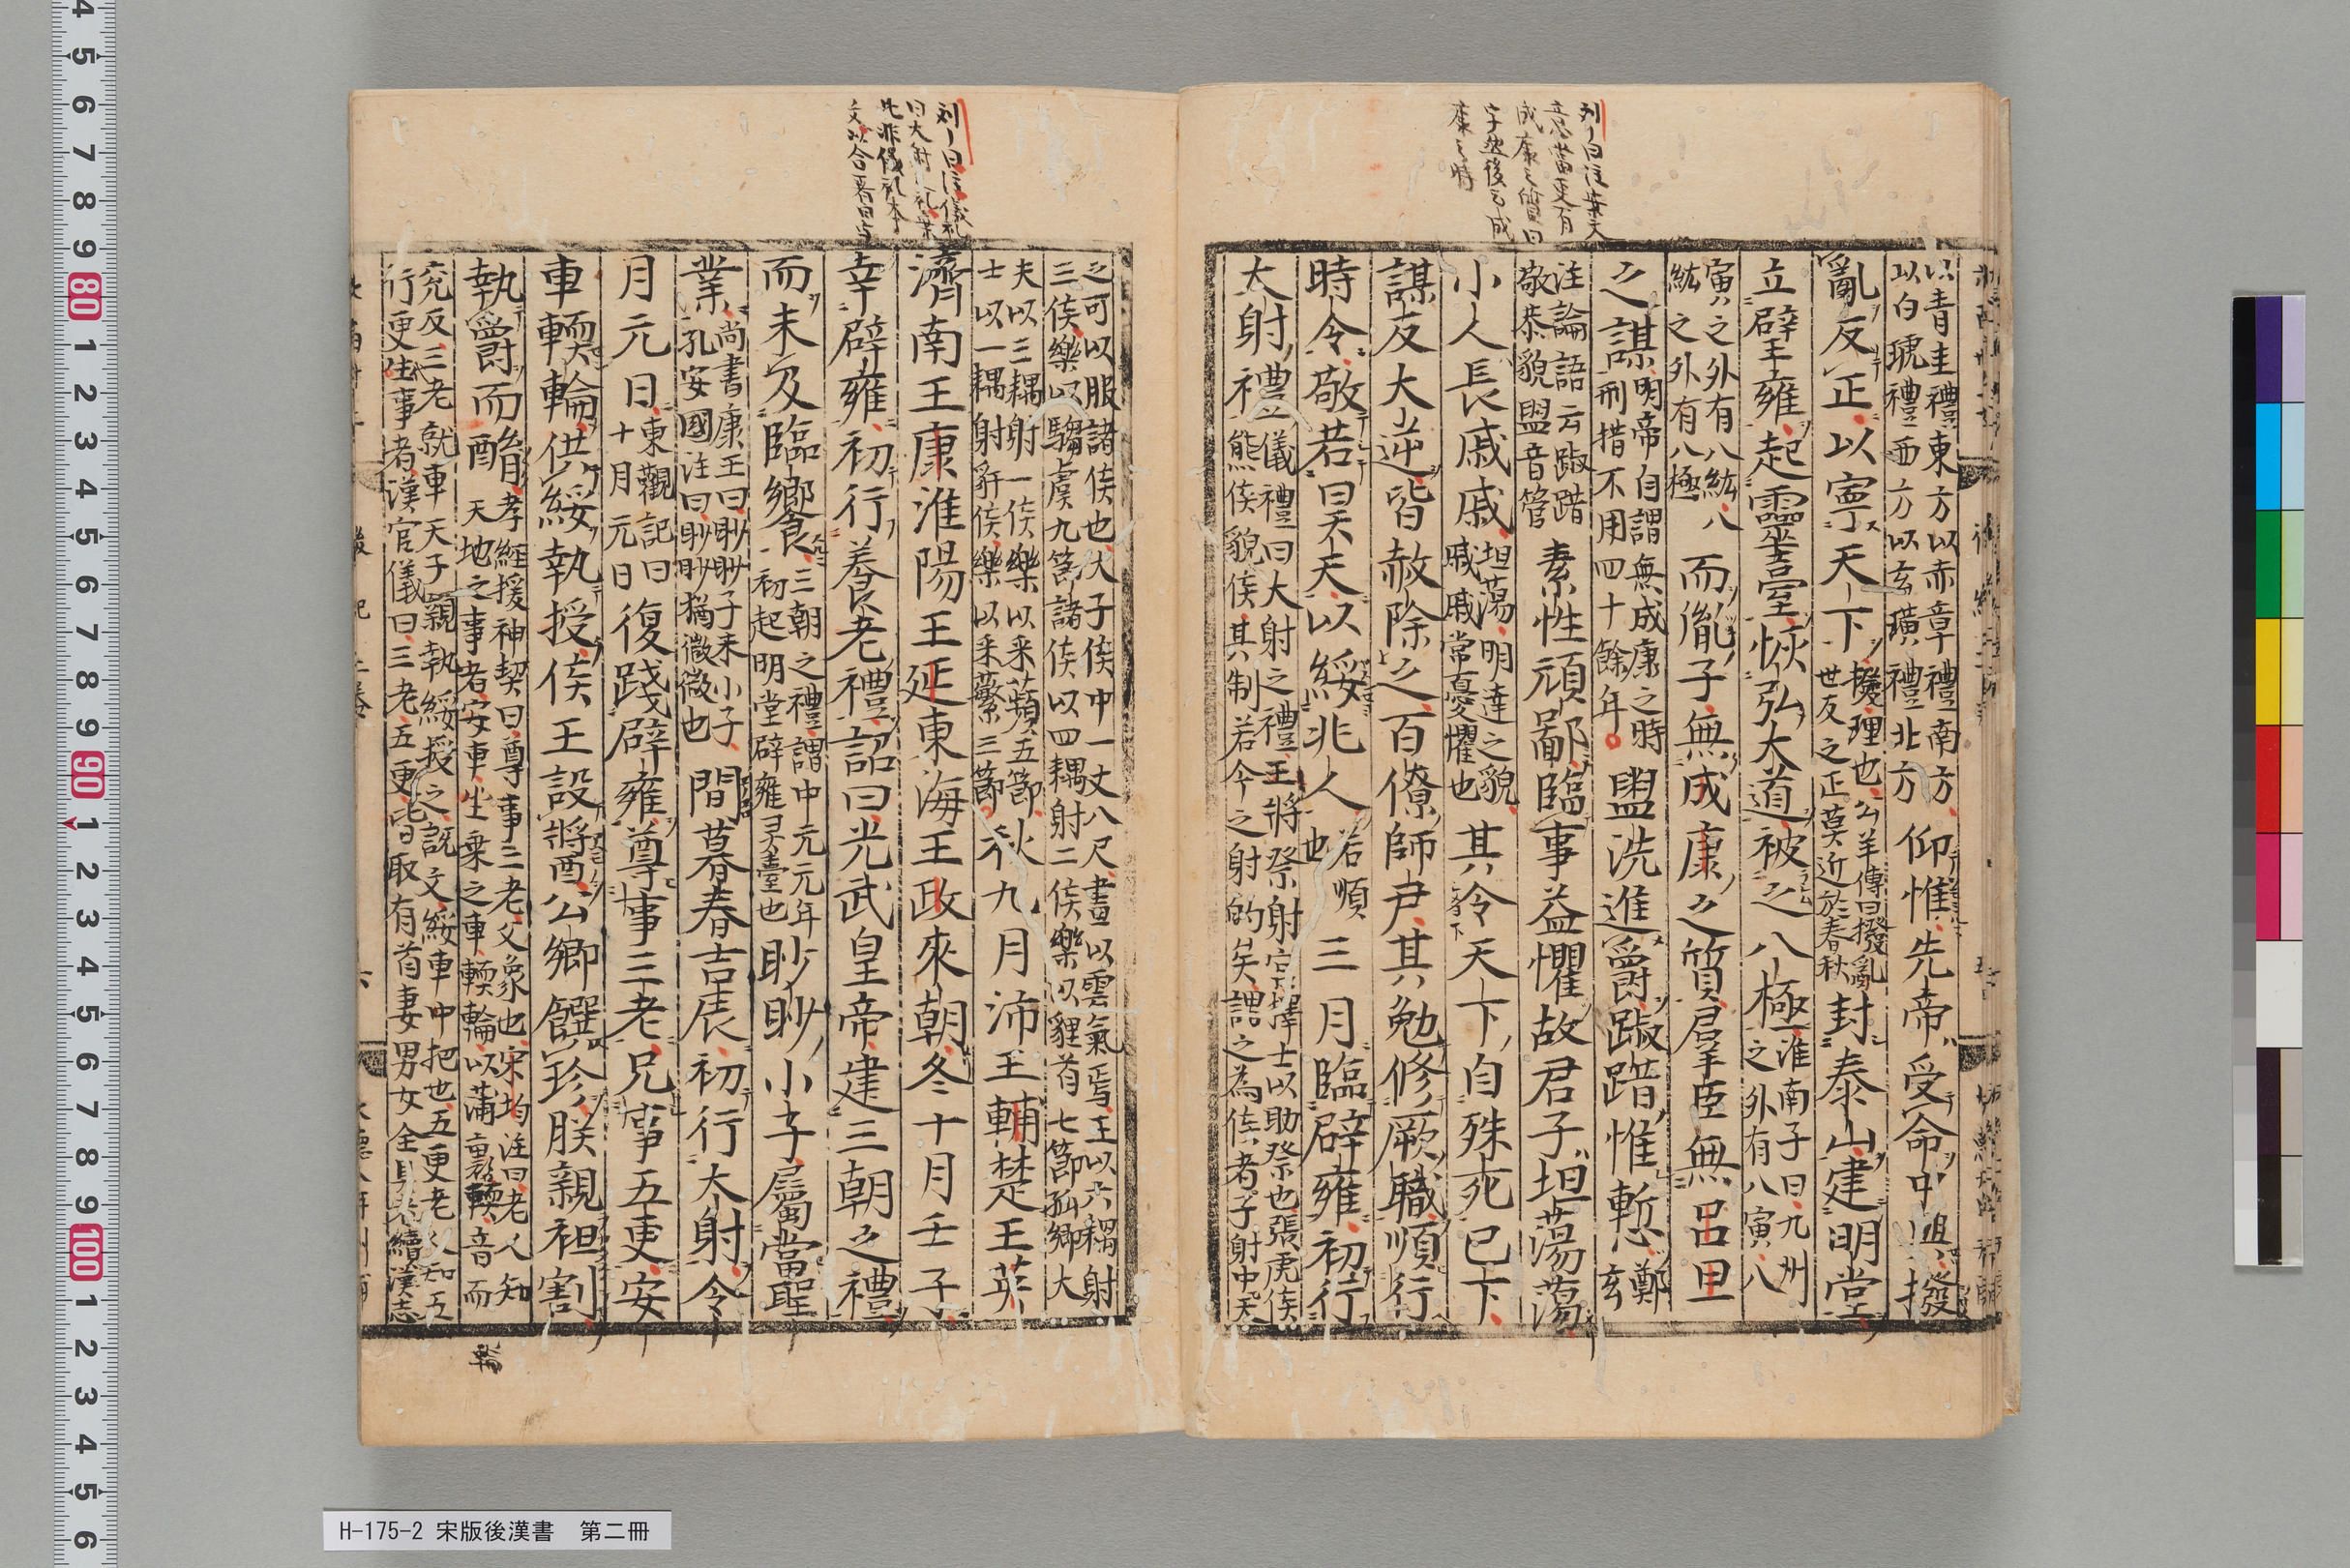 刘曰注案文
意當更有
成康之質四
字然後云成
康之時
以青圭禮東方以赤章禮南方
以白琥禮西方以玄璜禮北方
仰惟先帝受命中興撥
亂反正以寧天下
撥理也公羊傳曰撥亂
世反之正莫近於春秋
封泰山建明堂
立辟雍起靈臺恢弘大道被之八極
淮南子曰九州
之外有八寅八
寅之外有八紘八
紘之外有八極
而胤子無成康之質羣臣無呂旦
之謀
明帝自謂無成康之時
刑措不用四十餘年
盥洗進爵踧踖惟慙
鄭玄
注論語云踧踖
敬恭貌盥音管
素性頑鄙臨事益懼故君子坦蕩蕩
小人長戚戚
坦蕩明達之貌
戚戚常憂懼也
其令天下自殊死已下
謀反大逆皆赦除之百僚師尹其勉修厥職順行
時令敬若昊天以綏兆人
若順
也
三月臨辟雍初行
大射禮
儀禮曰大射之禮王將祭射宮擇士以助祭也張虎侯
熊侯貌侯其制若今之射的矣謂之為侯者子射中天
刘曰注儀礼
曰大射之礼案
此非儀礼本
文以合著曰与
之可以服諸侯也天子侯中一丈八尺畫以雲氣焉王以六耦射
三侯樂以騶虞九節諸侯以四耦射二侯樂以貍首七節孤卿大
夫以三耦射一侯樂以采蘋五節
士以一耦射豻侯樂以采蘩三節
秋九月沛王輔楚王英
濟南王康淮陽王延東海王政來朝冬十月壬子
幸辟雍初行養老禮詔曰光武皇帝建三朝之禮
而未及臨饗
三朝之禮謂中元元年
初起明堂辟雍灵臺也
眇眇小子屬當聖
業
尚書康王曰眇眇予末小子
孔安國注曰眇眇猶微微也
間暮春吉辰初行大射令
月元日
東觀記曰
十月元日
復踐辟雍尊事三老兄事五更安
車輭輪供綏執授侯王設醬公卿饌珍朕親袒割
執爵而酳
孝經援神契曰尊事三老父象也宋均注曰老人知
天地之事者安車坐乘之車輭輪以蒲裹輭音而
兖反三老就車天子親執綏授之說文綏車中把也五更老人知五
行更生事者漢官儀曰三老五更皆取有首妻男女全具者續漢志
輪
H-175-2 宋版後漢書　第二冊